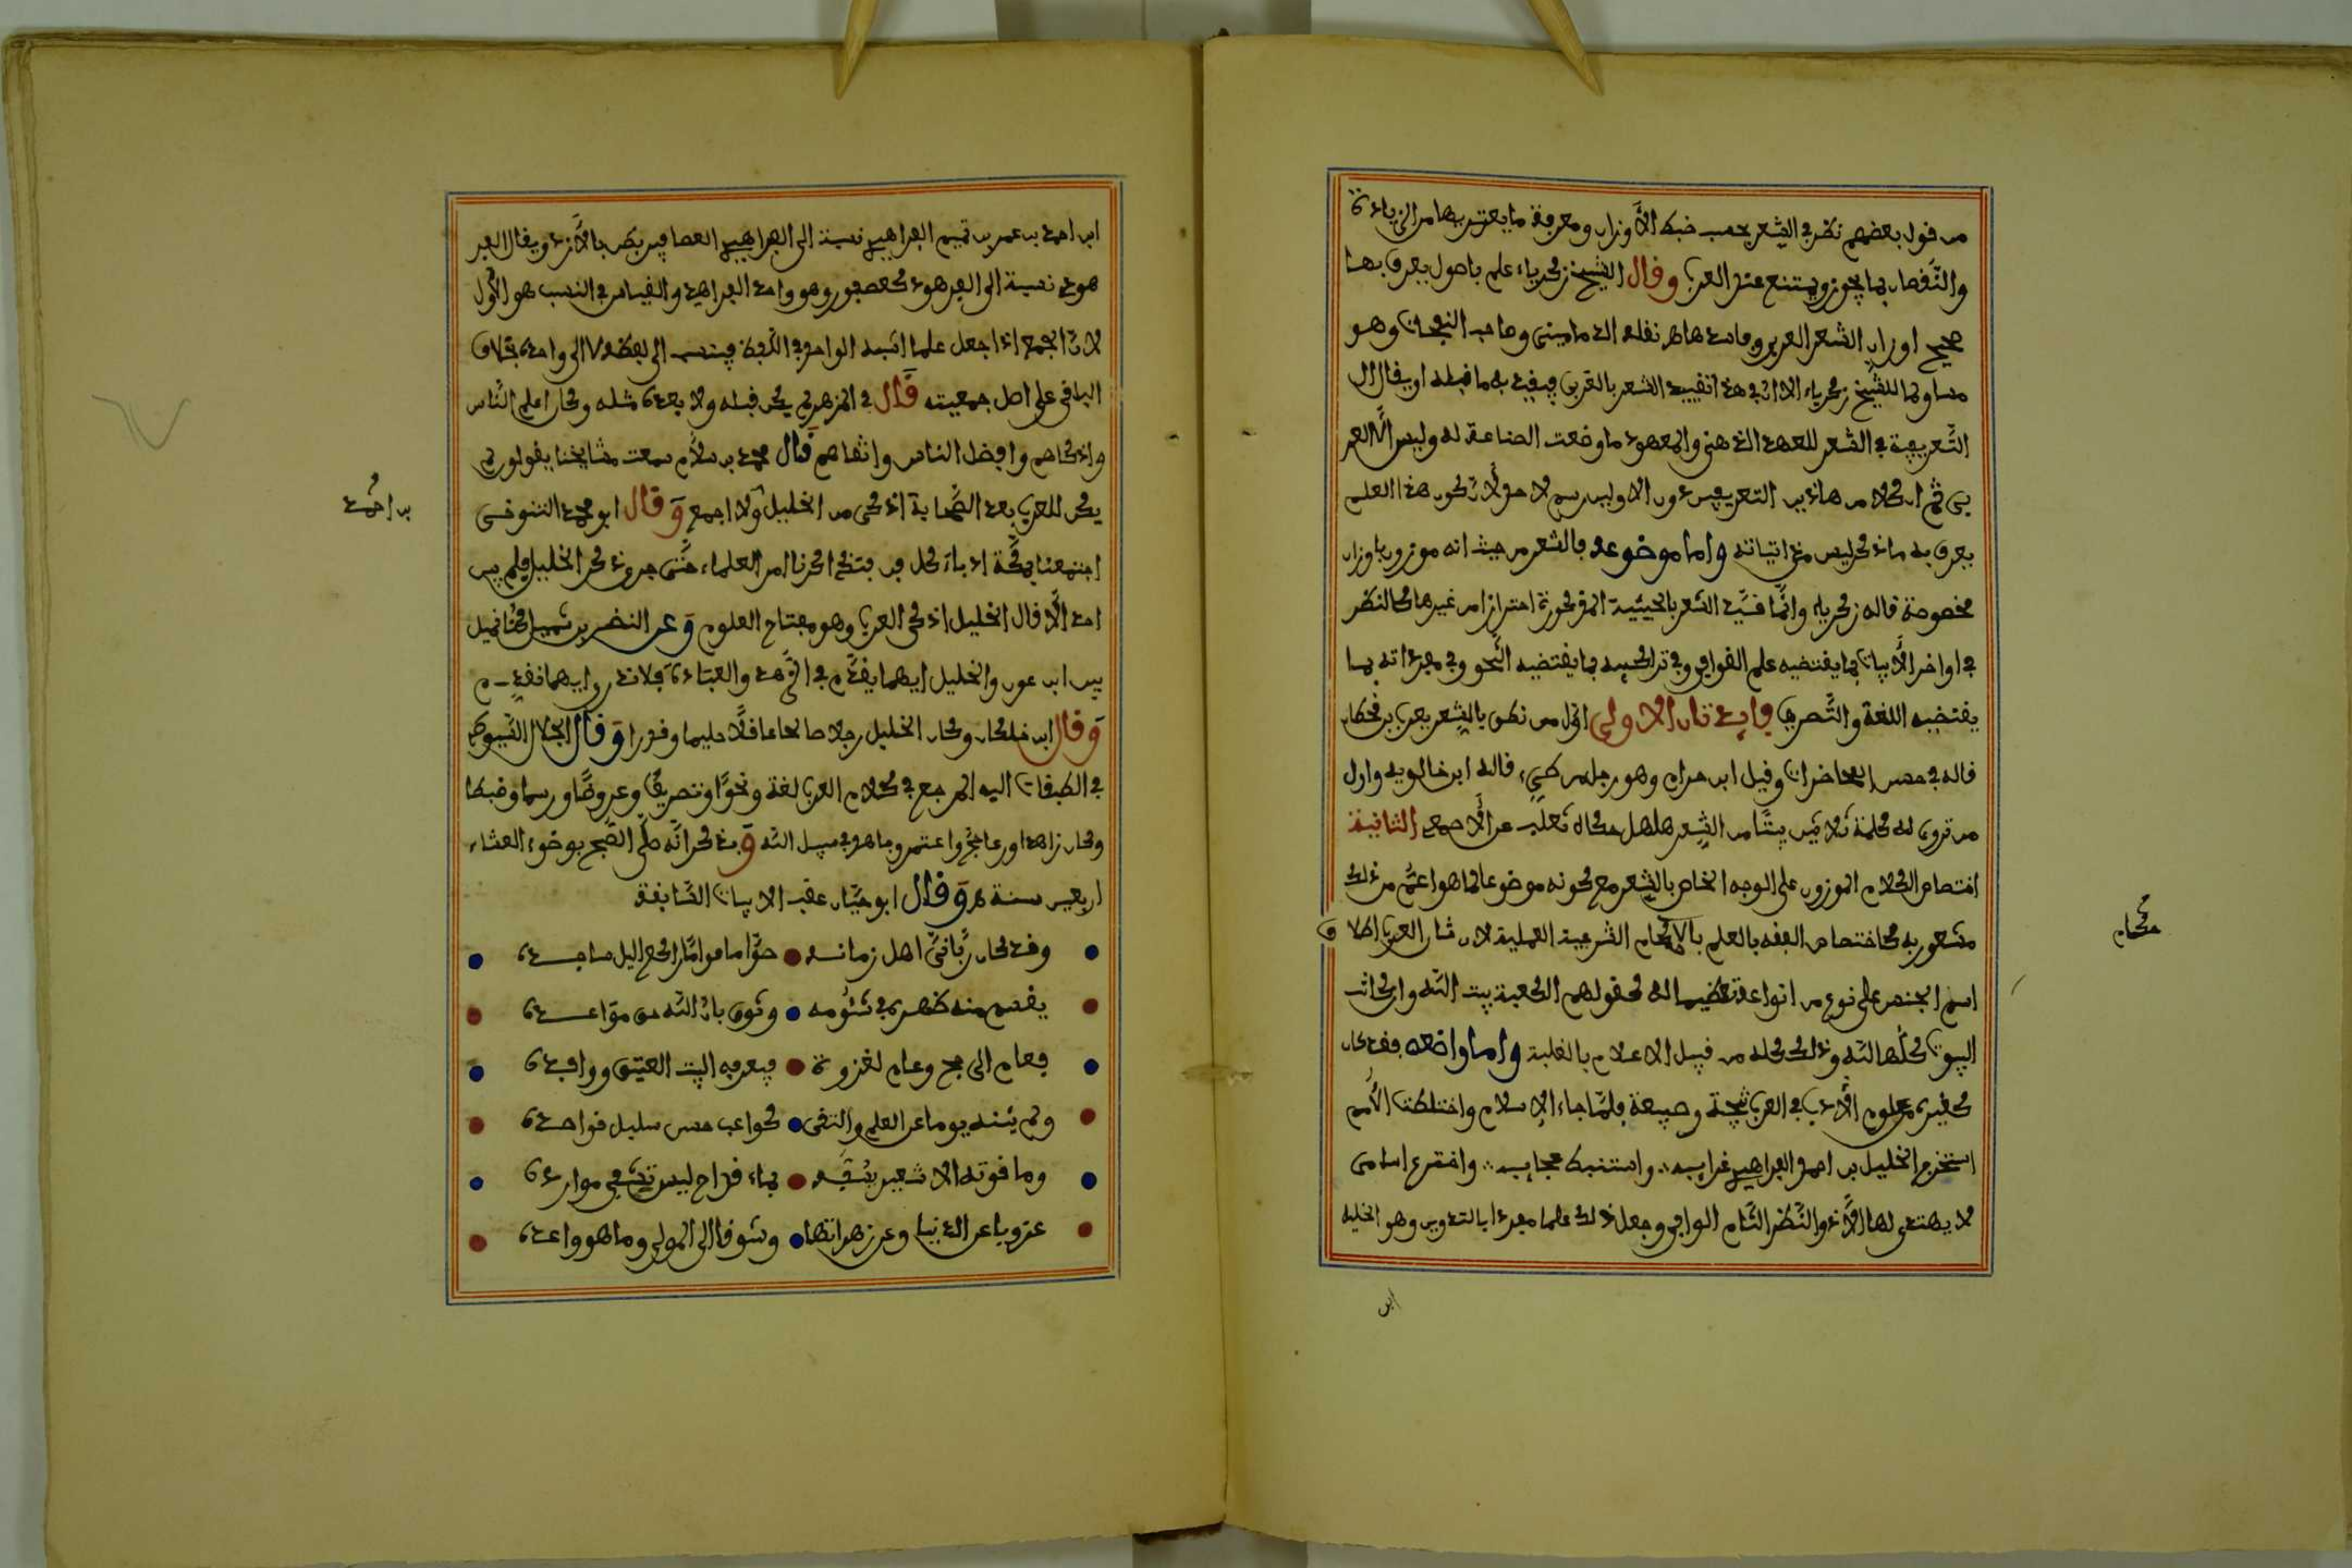 من قول بعضهم نظر في الشعر بحسب ضبط الأوزان ومعرفة ما يعتريها من الزيادة
والنّقصان بما يجوز ويمتنع عند العرب وقال الشيخ زكرياء علم باصول يعرف بها
صحيح اوزان الشعر العربي وفاسدها هـ نقله الدمامينى وصاحب النفحات وهو
مساو لما للشيخ زكرياء الا ان في هذا تقييد الشعر بالعربى فيفيد به ما قبله او يقال ال
التّعريفية في الشعر للعهد الذهني والمعهود ما وضعت الصناعة له وليس الّا العر
بى ثم ان كلا من هاذين التعريفين دون الاولين رسم لا حد ولا تكون هذا العلم
يعرف به ما ذكر ليس من اتياته واما موضوعه فالشعر من حيث انه موزون باوزان
مخصوصة قاله زكرياء وانّما قيّد الشعر بالحيثية المذكورة احترازا من غيرها كالنظر
في اواخر الأبيات بما يقتضيه علم القوافي وفي تراكيبه بما يقتضيه النّحو وفي مفرداته بما
يقتضيه اللغة والتّصريف فايدتان الاولى اوّل من نطق بالشعر يعرب بن قحطان
قاله في حسن المحاضرات وقيل ابن حرام وهو رجل من طيء قاله ابن خالويه واول
من تروى له كلمة ثلاثين بيتا من الشعر هلهل حكاه ثعلب عن الأصمعى الثانية
اختصاص الكلام الموزون على الوجه الخاص بالشعر مع كونه موضوعا لما هو اعمّ من ذلك
مشعور به كاختصاص الفقه بالعلم بالاحكام الشرعية العملية لان شان العرب اطلاق
حكام
اسم الجنس على نوع من انواعه تعظيما له كقولهم الكعبة بيت الله وان كانت
البيوت كلّها لله وذلك كله من قبيل الاعلام بالغلبة واما واضعه فقد كان
كغيره من علوم الأدب في العرب سجية وطبيعة فلمّا جاء الإسلام واختلطت الأمم
استخرج الخليل بن احمد الفراهيدي غرايبه واستنبط عجايبه واخترع اسامى
لا يهتدى لها الّا ذو النّظر التّام الوافي وجعل ذلك علما مفردا بالتدوين وهو الخليل
ابن
ابن احمد بن عمر بن تميم الفراهيدي نسبة الى الفراهيد العصافير بطن بالأزد ويقال الفر
هودى نسبة الى الفرهود كعصفور وهو واحد الفراهيد والقياس في النسب هو الأول
لانّ الجمع اذا جعل علما اشبه الواحد في اللّفظ فينسب الى لفظه لا الى واحده بخلاف
الباقى على اصل جمعيته قال في المزهر لم يكن قبله ولا بعده مثله وكان اعلم الناس
واذكاهم وافضل الناس واتقاهم قال محمد بن سلّام سمعت مشايخنا يقولون لم
يكن للعرب بعد الصّحابة اذكى من الخليل ولا اجمع وقال ابو محمد التنوخى
بن احمد
اجتمعنا بمكّة ادباء كل فن فتذاكرنا امر العلماء حتّى جرى ذكر الخليل فلم يبق
احد الّا قال الخليل اذكى العرب وهو مفتاح العلوم وعن النضر بن شميل كنا نميل
بين ابن عون والخليل ايهما يقدّم في الزّهد والعبادة فلا ندري ايهما نقدم
وقال ابن خلكان وكان الخليل رجلا صالحا عاقلا حليما وقورا وقال الجلال السّيوطى
في الطبقات اليه المرجع في كلام العرب لغة ونحوا وتصريفا وعروضا ورسما وضبطا
وكان زاهدا ورعا حجّ واعتمر وجاهد في سبيل الله وذكر انّه صلّى الصّبح بوضوء العشاء
اربعين سنة هـ وقال ابو حيّان عقب الابيات السّابقة
وقد كان ربّانيّ اهل زمانه صوّاما قوّاما اراكع اليل ساجده
يقسم منه ظهره في شئومه وثوق بانّ الله حق مواعده
فعام الى حج وعام لغزوة فيعرفه البيت العتيق ووافده
ولم يثنه يوما عن العلم والتقى كواعب حسن سليل قواصده
وما قوته الا شعير يسفه بماء قراح ليس تغشى موارده
عزوبا عن الدنيا وعن زهراتها وشوقا الى المولى وما هو واعده